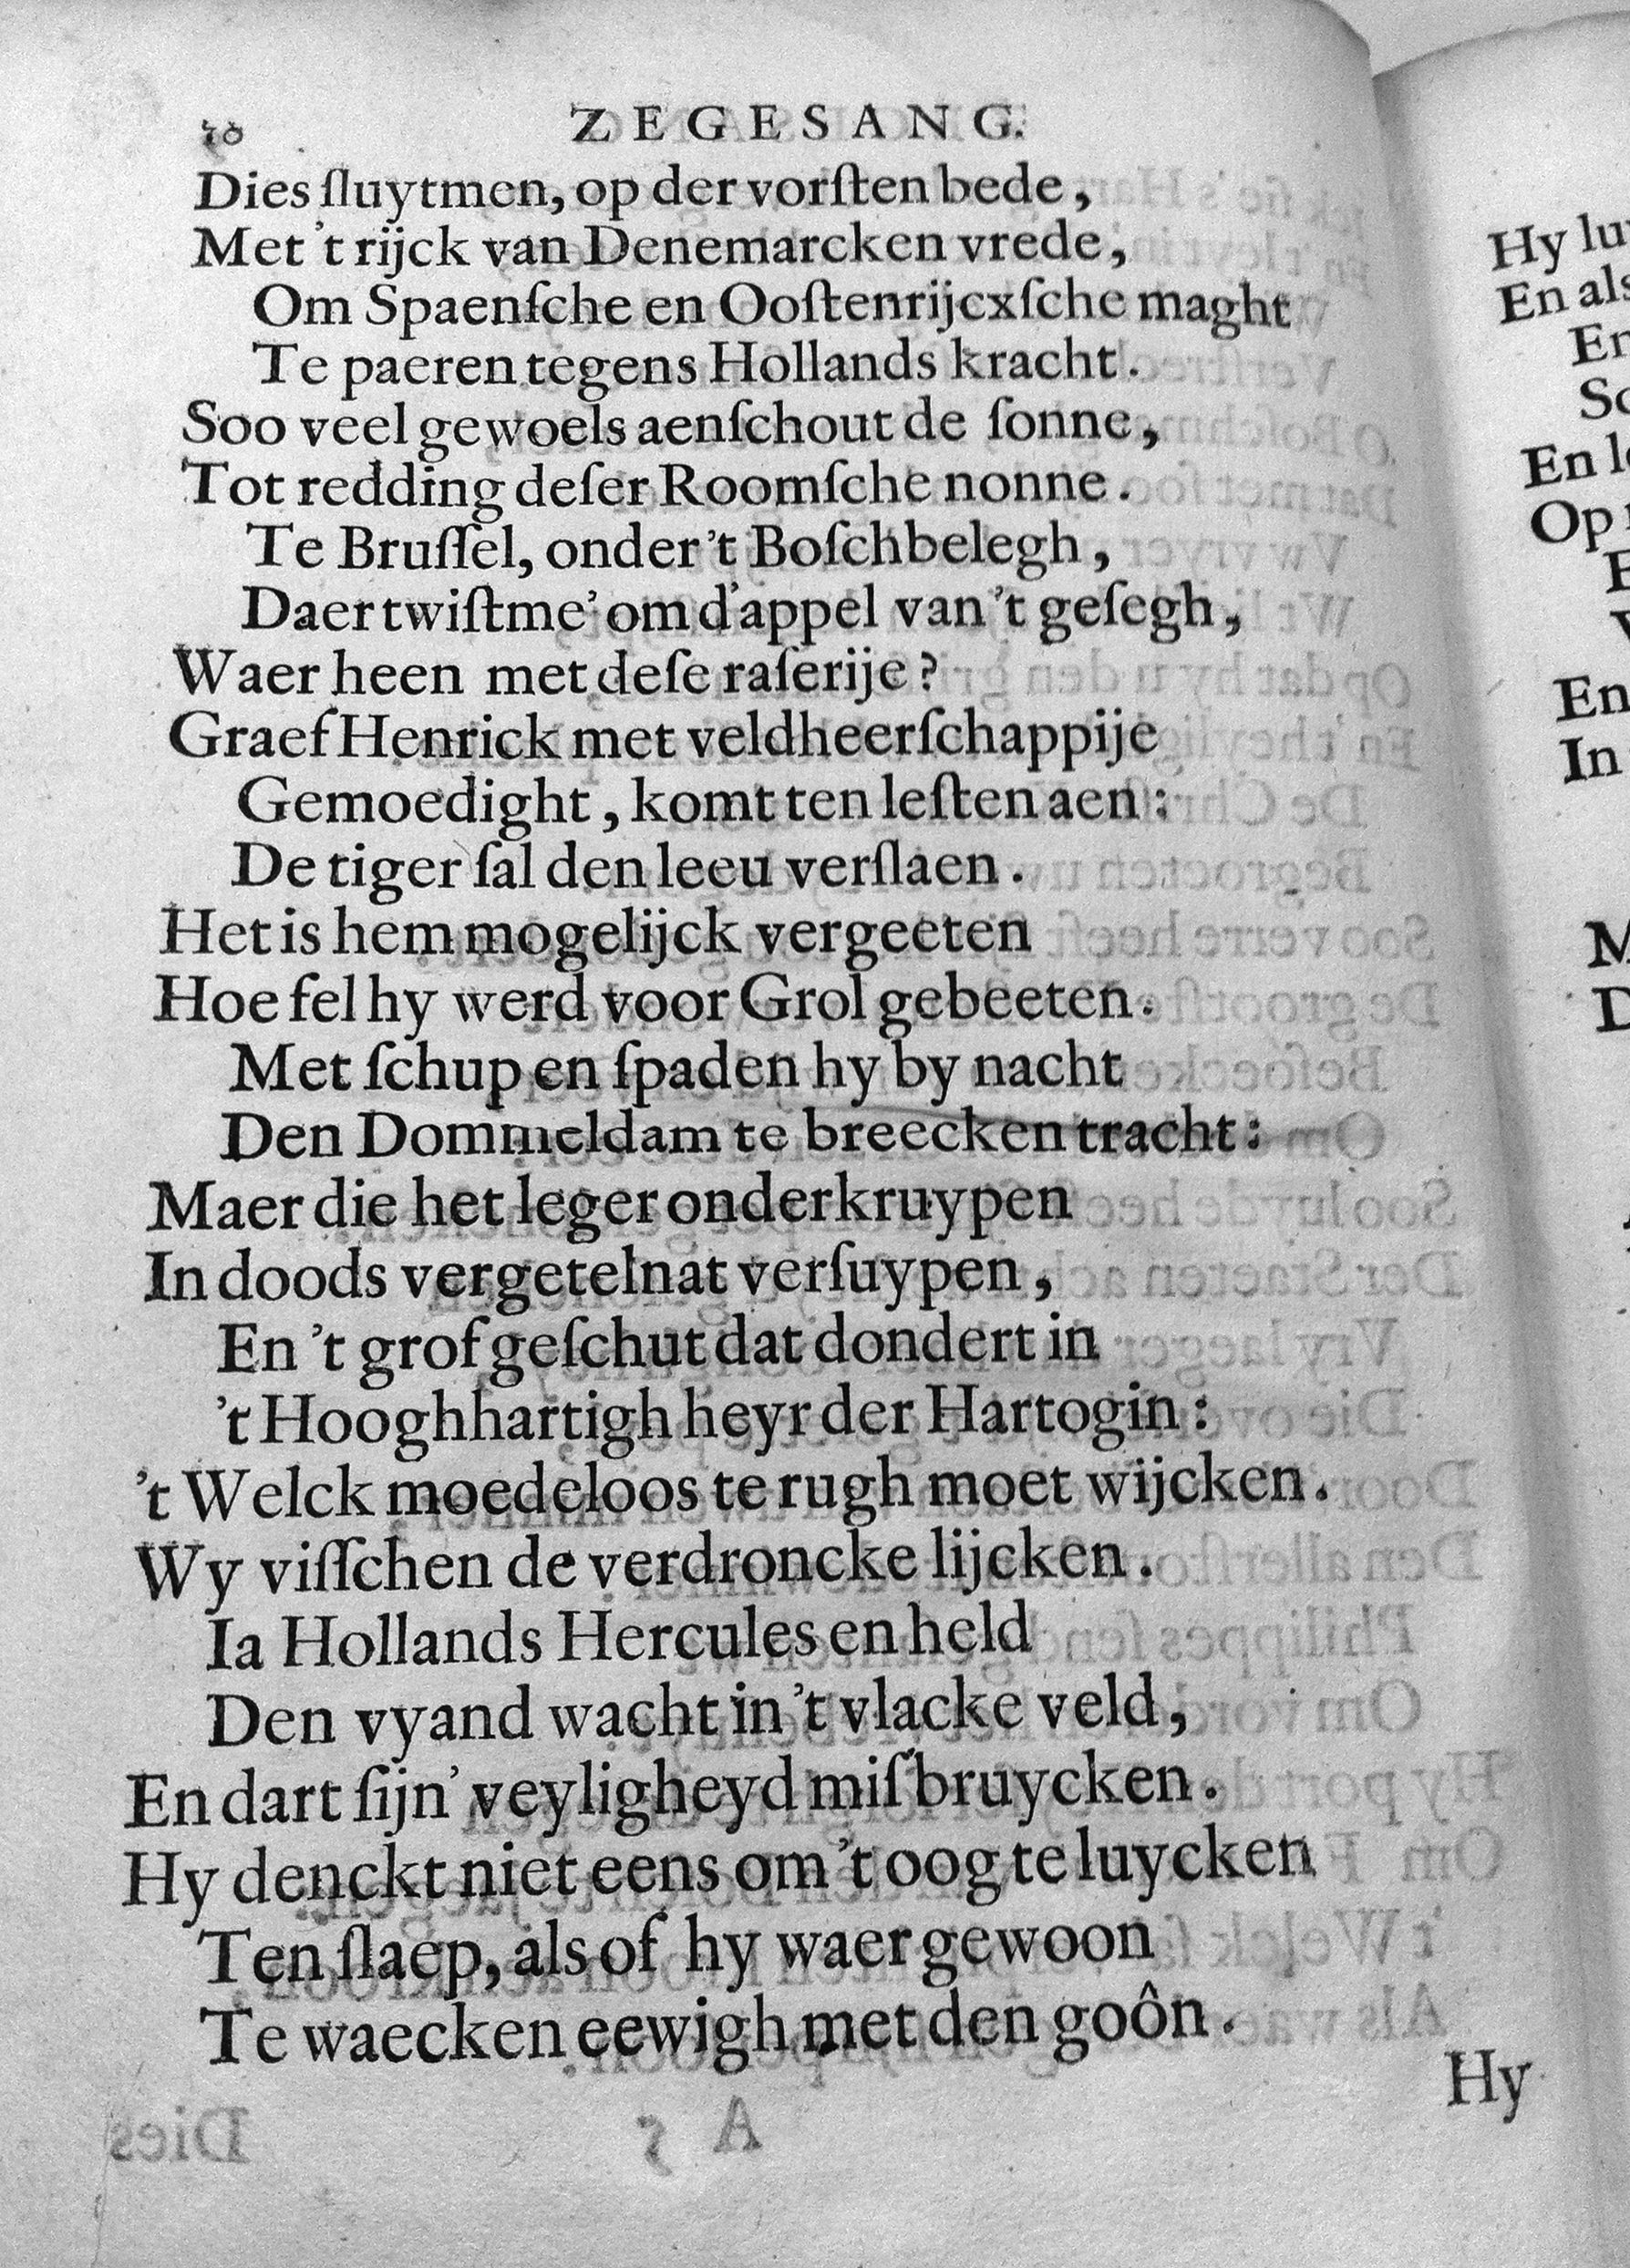 ZEGESANG.
Dies ſluytmen, op der vorſten bede,
Met 't rijck van Denemarcken vrede,
Om Spaenſche en Ooſtenrijcxſche maght
Te paeren tegens Hollands kracht.
Soo veel gewoels aenſchout de ſonne,
Tot redding deſer Roomſche nonne.
Te Bruſſel, onder 't Boſchbelegh,
Daer twiſtme' om d'appel van 't geſegh,
Waer heen met deſe raſerije?
Graef Henrick met veldheerſchappije
Gemoedight, komt ten leſten aen:
De tiger ſal den leeu verſlaen.
Het is hem mogelijck vergeeten
Hoe fel hy werd voor Grol gebeeten.
Met ſchup en ſpaden hy by nacht
Den Dommeldam te breecken tracht:
Maer die het leger onderkruypen
In doods vergetelnat verſuypen,
En 't grof geſchut dat dondert in
't Hooghhartigh heyr der Hartogin:
't Welck moedeloos te rugh moet wijcken.
Wy viſſchen de verdroncke lijcken.
Ia Hollands Hercules en held
Den vyand wacht in 't vlacke veld,
En dart ſijn' veyligheyd miſbruycken.
Hy denckt niet eens om 't oog te luycken
Ten ſlaep, als of hy waer gewoon
Te waecken eewigh met den goôn.
Hy
Hy
En als
En
So
Op
En
In